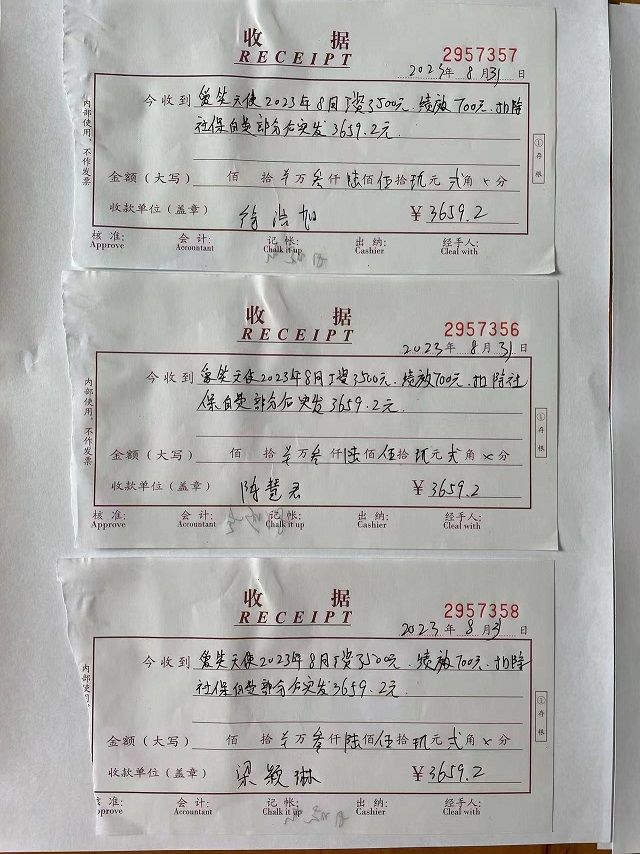 收 据
RECEIPT
2957357
2023年 8月31日
今收到 爱笑天使2023年8月工资3500元.绩效700元.扣除
社保自费部分后实发3659.2元.
内部使用,不作发票
①存根
金额(大写) 佰 拾 万 叁仟陆佰伍拾玖元贰角×分
收款单位(盖章) 徐浩 ¥3659.2
核准: 会计: 记帐: 出纳: 经手人:
Approve Accountant Chalk it up Cashier Cleal with
收 据
RECEIPT
2957356
2023年 8月31日
今收到 爱笑天使2023年8月工资3500元.绩效700元.扣除社
保自费部分后实发3659.2元.
内部使用,不作发票
①存根
金额(大写) 佰 拾 万 叁仟陆佰伍拾玖元贰角×分
收款单位(盖章) 陈慧君 ¥3659.2
核准: 会计: 记帐: 出纳: 经手人:
Approve Accountant Chalk it up Cashier Cleal with
收 据
RECEIPT
2957358
2023年 8月31日
今收到 爱笑天使2023年8月工资3500元.绩效700元.扣除
社保自费部分后实发3659.2元.
内部使用
①存根
金额(大写) 佰 拾 万 叁仟陆佰伍拾玖元贰角×分
收款单位(盖章) 梁颖琳 ¥3659.2
准: 会计: 记帐: 出纳: 经手人:
pprove Accountant Chalk it up Cashier Cleal with